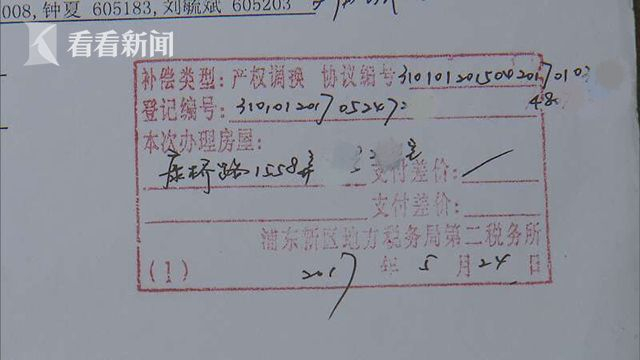 008,钟夏 605183,刘毓斌 605203
看看新闻
补偿类型: 产权调换 协议编号31010120150020170102
登记编号: 310101201705247248
本次办理房屋:
康桥路1558弄 32 室 支付差价:
支付差价:
浦东新区地方税务局第二税务所
(1) 2017 年 5 月 24 日